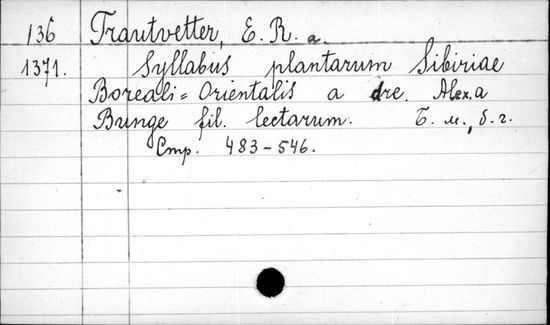 136 Trautvetter, E. R. a.
1371. Syllabus plantarum Sibiriae
Boreali=Orientalis a dre. Alex.a
Bunge fil. lectarum. Б. м., б. г.
Стр. 483-546.